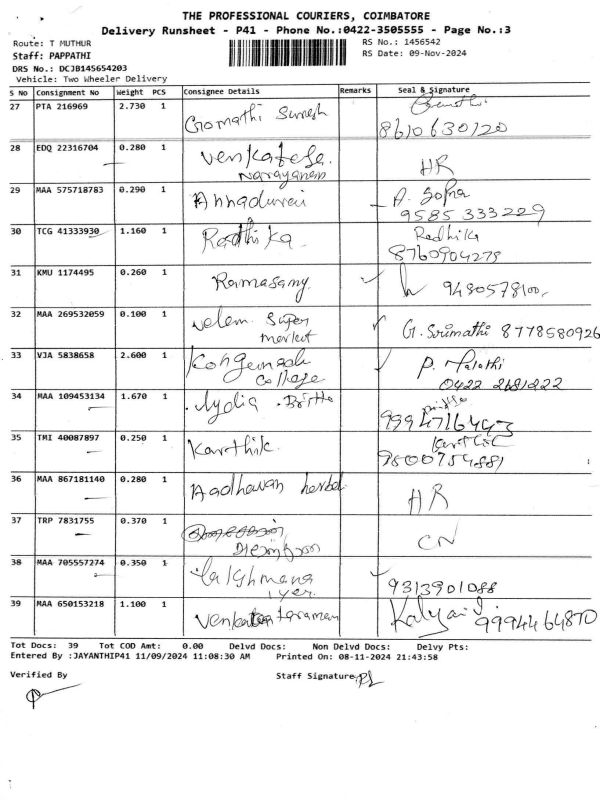 THE PROFESSIONAL COURIERS, COIMBATORE
Delivery Runsheet - P41 - Phone No.:0422-3505555 - Page No.:3
Route: T MUTHUR
RS No.: 1456542
Staff: PAPPATHI
RS Date: 09-Nov-2024
DRS No.: DCJB145654203
Vehicle: Two Wheeler Delivery
S No Consignment No Weight PCS Consignee Details Remarks Seal & Signature
27 PTA 216969 2.730 1 Gomathi Suresh
8610630120
28 EDQ 22316704 0.280 1 Venkatesa HR
Narayanan
29 MAA 575718783 0.290 1 Annadurai A. Sofia
9585 333229
30 TCG 41333930 1.160 1 Radhika Radhika
8760904279
31 KMU 1174495 0.260 1 Ramasamy 9480578100
32 MAA 269532059 0.100 1 Velem Super G. Srimathi 8778580926
market
33 VJA 5838658 2.600 1 Kongunadu P. Malathi
College 0422 2681222
34 MAA 109453134 1.670 1 Lydia Britto
9994716443
35 TMI 40087897 0.250 1 Karthik Karthik
9500754881
36 MAA 867181140 0.280 1 Aadhavan herbal HR
37 TRP 7831755 0.370 1 CN
38 MAA 705557274 0.350 1 Lakshmana
Iyer 9313901088
39 MAA 650153218 1.100 1 Venkataraman Kalyani 9994464870
Tot Docs: 39 Tot COD Amt: 0.00 Delvd Docs: Non Delvd Docs: Delvy Pts:
Entered By :JAYANTHIP41 11/09/2024 11:08:30 AM Printed On: 08-11-2024 21:43:58
Verified By Staff Signature